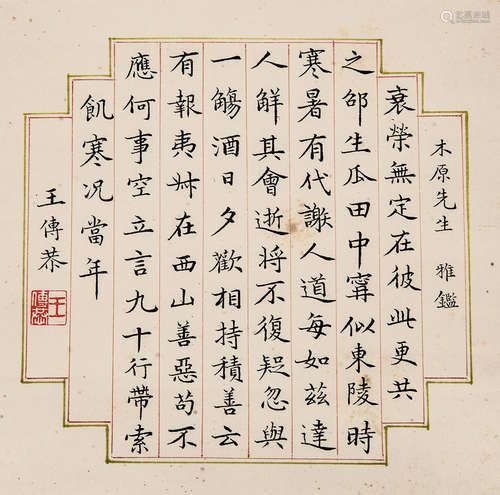 木原先生 雅鑑
衰榮無定在彼此更共
之邵生瓜田中甯似東陵時
寒暑有代謝人道每如茲達
人觧其會逝將不復疑忽與
一觴酒日夕歡相持積善云
有報夷叔在西山善惡苟不
應何事空立言九十行帶索
飢寒況當年
王傳恭
王傳恭